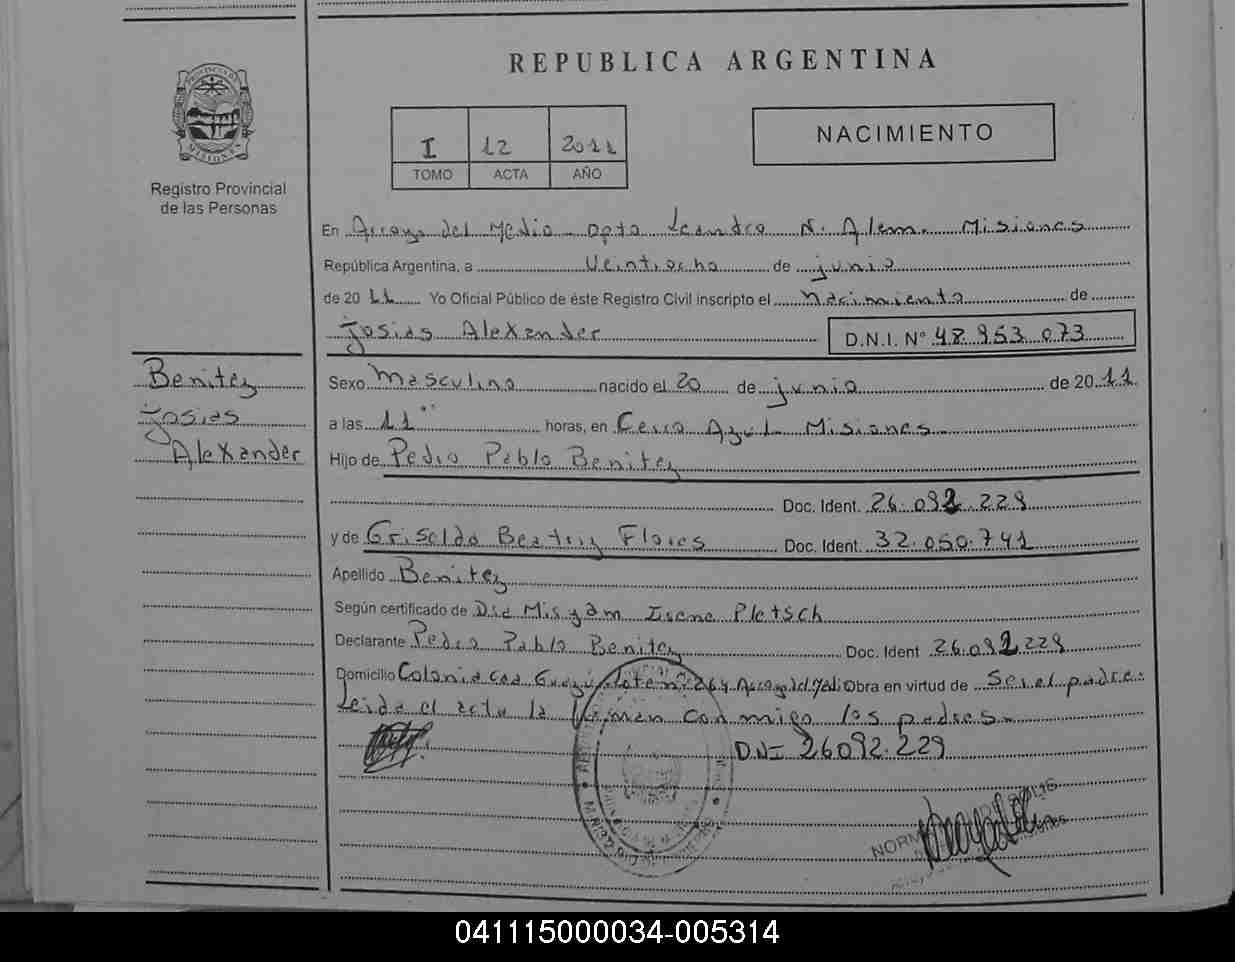 REPUBLICA ARGENTINA
PROVINCIA DE MISIONES
Registro Provincial
de las Personas
I 12 2011
TOMO ACTA AÑO
NACIMIENTO
En Arroyo del Medio Dpto Leandro N. Alem. Misiones
República Argentina, a Veintiocho de junio
de 2011 Yo Oficial Público de éste Registro Civil inscripto el Nacimiento de
Josias Alexander D.N.I. N° 48.953.073
Benitez
Josias
Alexander
Sexo Masculino nacido el 20 de junio de 2011
a las 11 horas, en Cerro Azul Misiones
Hijo de Pedro Pablo Benitez
Doc. Ident. 26.092.229
y de Griselda Beatriz Flores Doc. Ident. 32.050.741
Apellido Benitez
Según certificado de Dra Misyam Irene Pletsch
Declarante Pedro Pablo Benitez Doc. Ident 26.092.229
Domicilio Colonia Obra en virtud de Ser el padre.
Leida el acta la firman con migo los padres.
DNI 26092.229
NORM
041115000034-005314